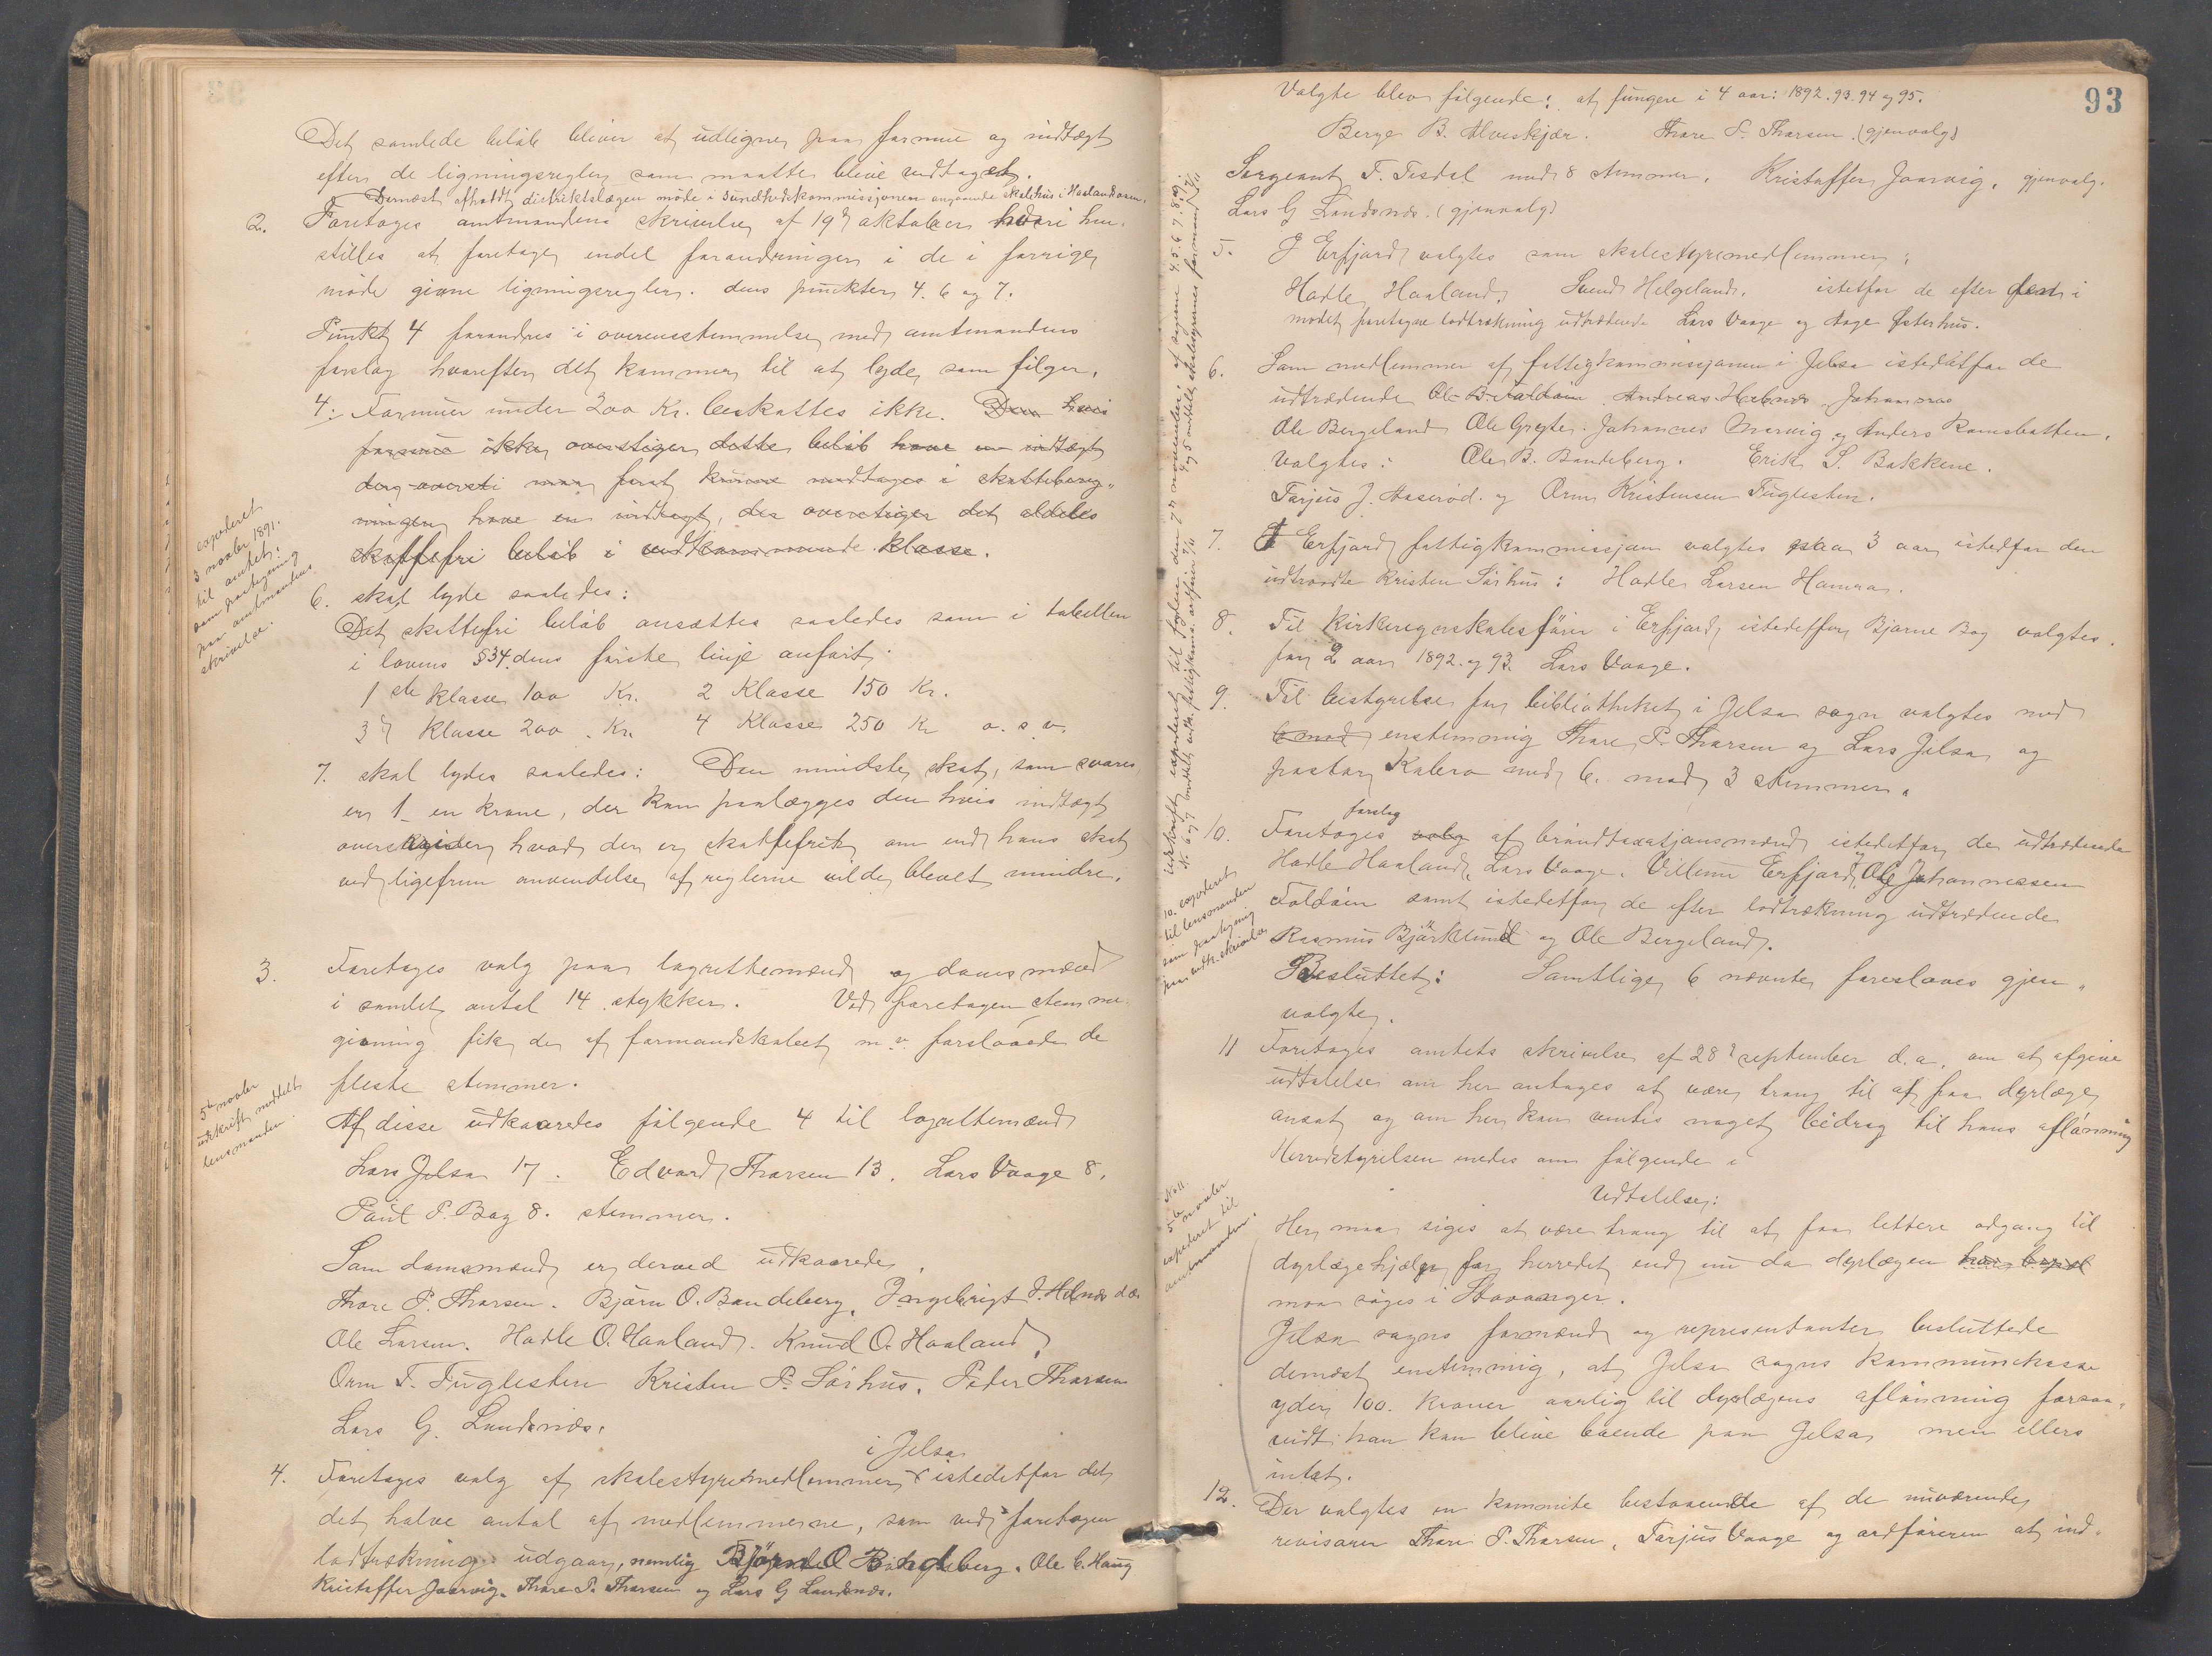 Det samlede beløb bliver at udligne paa formue og indtægt
efter de ligningsregler som maatte blive vedtaget.
Dernæst afholdt distriktslægen møde i sundhedskommissjonen angaaende skolehus i
2. Foretoges amtmandens skrivelse af 19de oktober hvori hen-
stilles at foretage endel forandringer i de i forrige
møde givne ligningsregler. dens punkter 4. 6 og 7.
Punkt 4 forandres i overensstemmelse med amtmandens
forslag hvorefter det kommer til at lyde som følger.
4: Formuer under 200 Kr. beskattes ikke. Den hvis
formue ikke overstiger dette beløb have en indtægt
forat kunne medtages i skattebereg-
ningen have en indtægt, der overstiger det aldeles
skattefri beløb i vedkommende klasse.
6. skal lyde saaledes:
Det skattefri beløb ansættes saaledes som i tabellen
i lovens §34. dens første linje anført.
1ste klasse 100 Kr. 2 Klasse 150 Kr.
3de klasse 200 Kr. 4 Klasse 250 Kr o. s. v.
7. skal lyde saaledes: Den mindste skat, som svares
er 1 en krone, der kan paalægges den hvis indtægt
overskrider hvad der er skattefrit om end hans skat
ved ligefrem anvendelse af reglerne vilde blevet mindre.
expederet
3 novbr 1891.
til amtet
som paategning
paa amtmandens
skrivelse.
3. Foretoges valg paa lagrettemænd og domsmænd
i samlet antal 14 stykker. Ved foretagen stemme-
givning fik de af formandskabet m. v. foreslaaede de
fleste stemmer.
Af disse udkaaredes følgende 4 til lagrettemænd
Lars Jelsa 17. Edvard Thorsen 13. Lars Vaage 8.
Paul P. Bag 8. stemmer.
5te novbr
udskrift meddelt
lensmanden
Som domsmænd er derved udkaarede
Thore P. Thorsen. Bjørn O. Bandeberg. Ingebrigt J. Helnæs
Ole Larsen. Hadle O. Haaland. Knud O. Haaland.
Orm T. Fuglesten Kristen P. Sørhus. Peder Thorsen
Lars G. Landsnæs.
i Jelsa
4. Foretoges valg af skolestyremedlemmer istedetfor det
det halve antal af medlemmerne, som ved foretagen
lodtrækning udgaar, nemlig Bjørn O Bandeberg. Ole C. Haug
Kristoffer Jaarvig. Thore P. Thorsen og Lars G Landsnæs.
93
Valgte blev følgende: at fungere i 4 aar: 1892. 93. 94 og 95.
Berge B. Alveskjær. Thore P. Thorsen. (gjenvalg)
Sergeant T. Tisdal med 8 stemmer. Kristoffer Jaarvig. gjenvalg.
Lars G Landsnæs. (gjenvalg)
5. I Erfjord valgtes som skolestyremedlemmer:
Hadle Haaland. Svend Helgeland. istetfor de efter den i
mødet foretagne lodtrækning udtrædende Lars Vaage og Aage Østerhus.
6. Som medlemmer af fattigkommissjonen i Jelsa istedetfor de
udtrædende Ole B. Foldøen. Andreas Helnæs. Johannes
Ole Bergeland Ole Grejte. Johannes Marvig og Anders Ramsbotten.
Valgtes: Ole B. Bandeberg. Erik S. Bakkene.
Tarjus J. Aaserød. og Orm Kristensen Fuglesten.
7. I Erfjord fattigkommissjon valgtes paa 3 aar istedfor den
udtraadte Kristen Sørhus: Hadle Larsen Hamra.
8. Til kirkeregnskabsfører i Erfjord istedetfor Bjarne Bag valgtes
for 2 aar 1892. og 93 Lars Vaage.
9. Til bestyrelse for bibliotheket i Jelsa sogn valgtes med
6 mod enstemmig Thore P. Thorsen og Lars Jelsa og
pastor Kalero med 6. mod 3 stemmer.
forslag
10. Foretoges valg af brandtaxatjonsmænd istedetfor de udtrædende
Hadle Haaland, Lars Vaage. Villum Erfjord, Ole Johannessen
Foldøen samt istedetfor de efter lodtrækning udtrædende
Rasmus Bjørklund og Ole Bergeland.
10. expederet
til lensmanden
som paategning
paa indk. skrivelse
Besluttet: Samtlige 6 nævnte foreslaaes gjen-
valgte.
11 Foretoges amtets skrivelse af 28de september d.a. om at afgive
udtalelse om her antages at være trang til at faa dyrlæge
ansat og om her kan ventes noget bidrag til hans aflønning
Herredstyrelsen enedes om følgende
Udtalelse:
No 11.
5te novbr
expederet til
amtmanden.
Her maa siges at være trang til at faa lettere adgang til
dyrlægehjælp for herredet end nu da dyrlægen har bopæl
maa søges i Stavanger.
Jelsa sogns formænd og repræsentanter besluttede
dernæst enstemmig, at Jelsa sogns kommunekasse
yder 100. kroner aarlig til dyrlægens aflønning forsaa-
vidt han kan blive boende paa Jelsa men ellers
intet.
12. Der valgtes en kommite bestaaende af de nuværende
revisorer Thore P. Thorsen, Tarjus Vaage og ordføreren at ind-